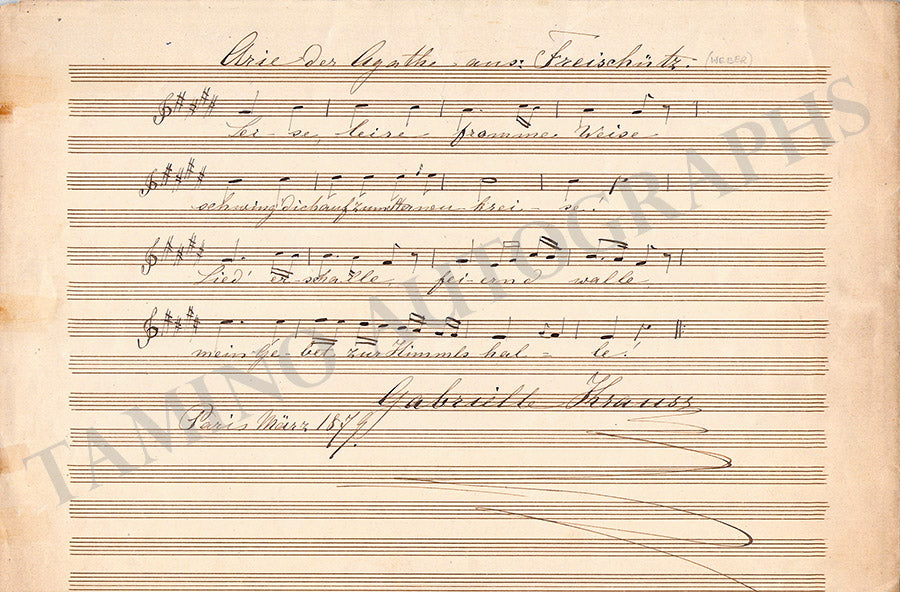 Arie der Agathe aus: Freischütz. (WEBER)
Lei- se, leise fromme Weise
schwing dich auf zum Sternen- krei- se!
Lied' er- schalle, fei- ernd walle
mein Ge- bet zur Himmls hal- le!
Gabrielle Krauss
Paris März 1879.
TAMINO AUTOGRAPHS